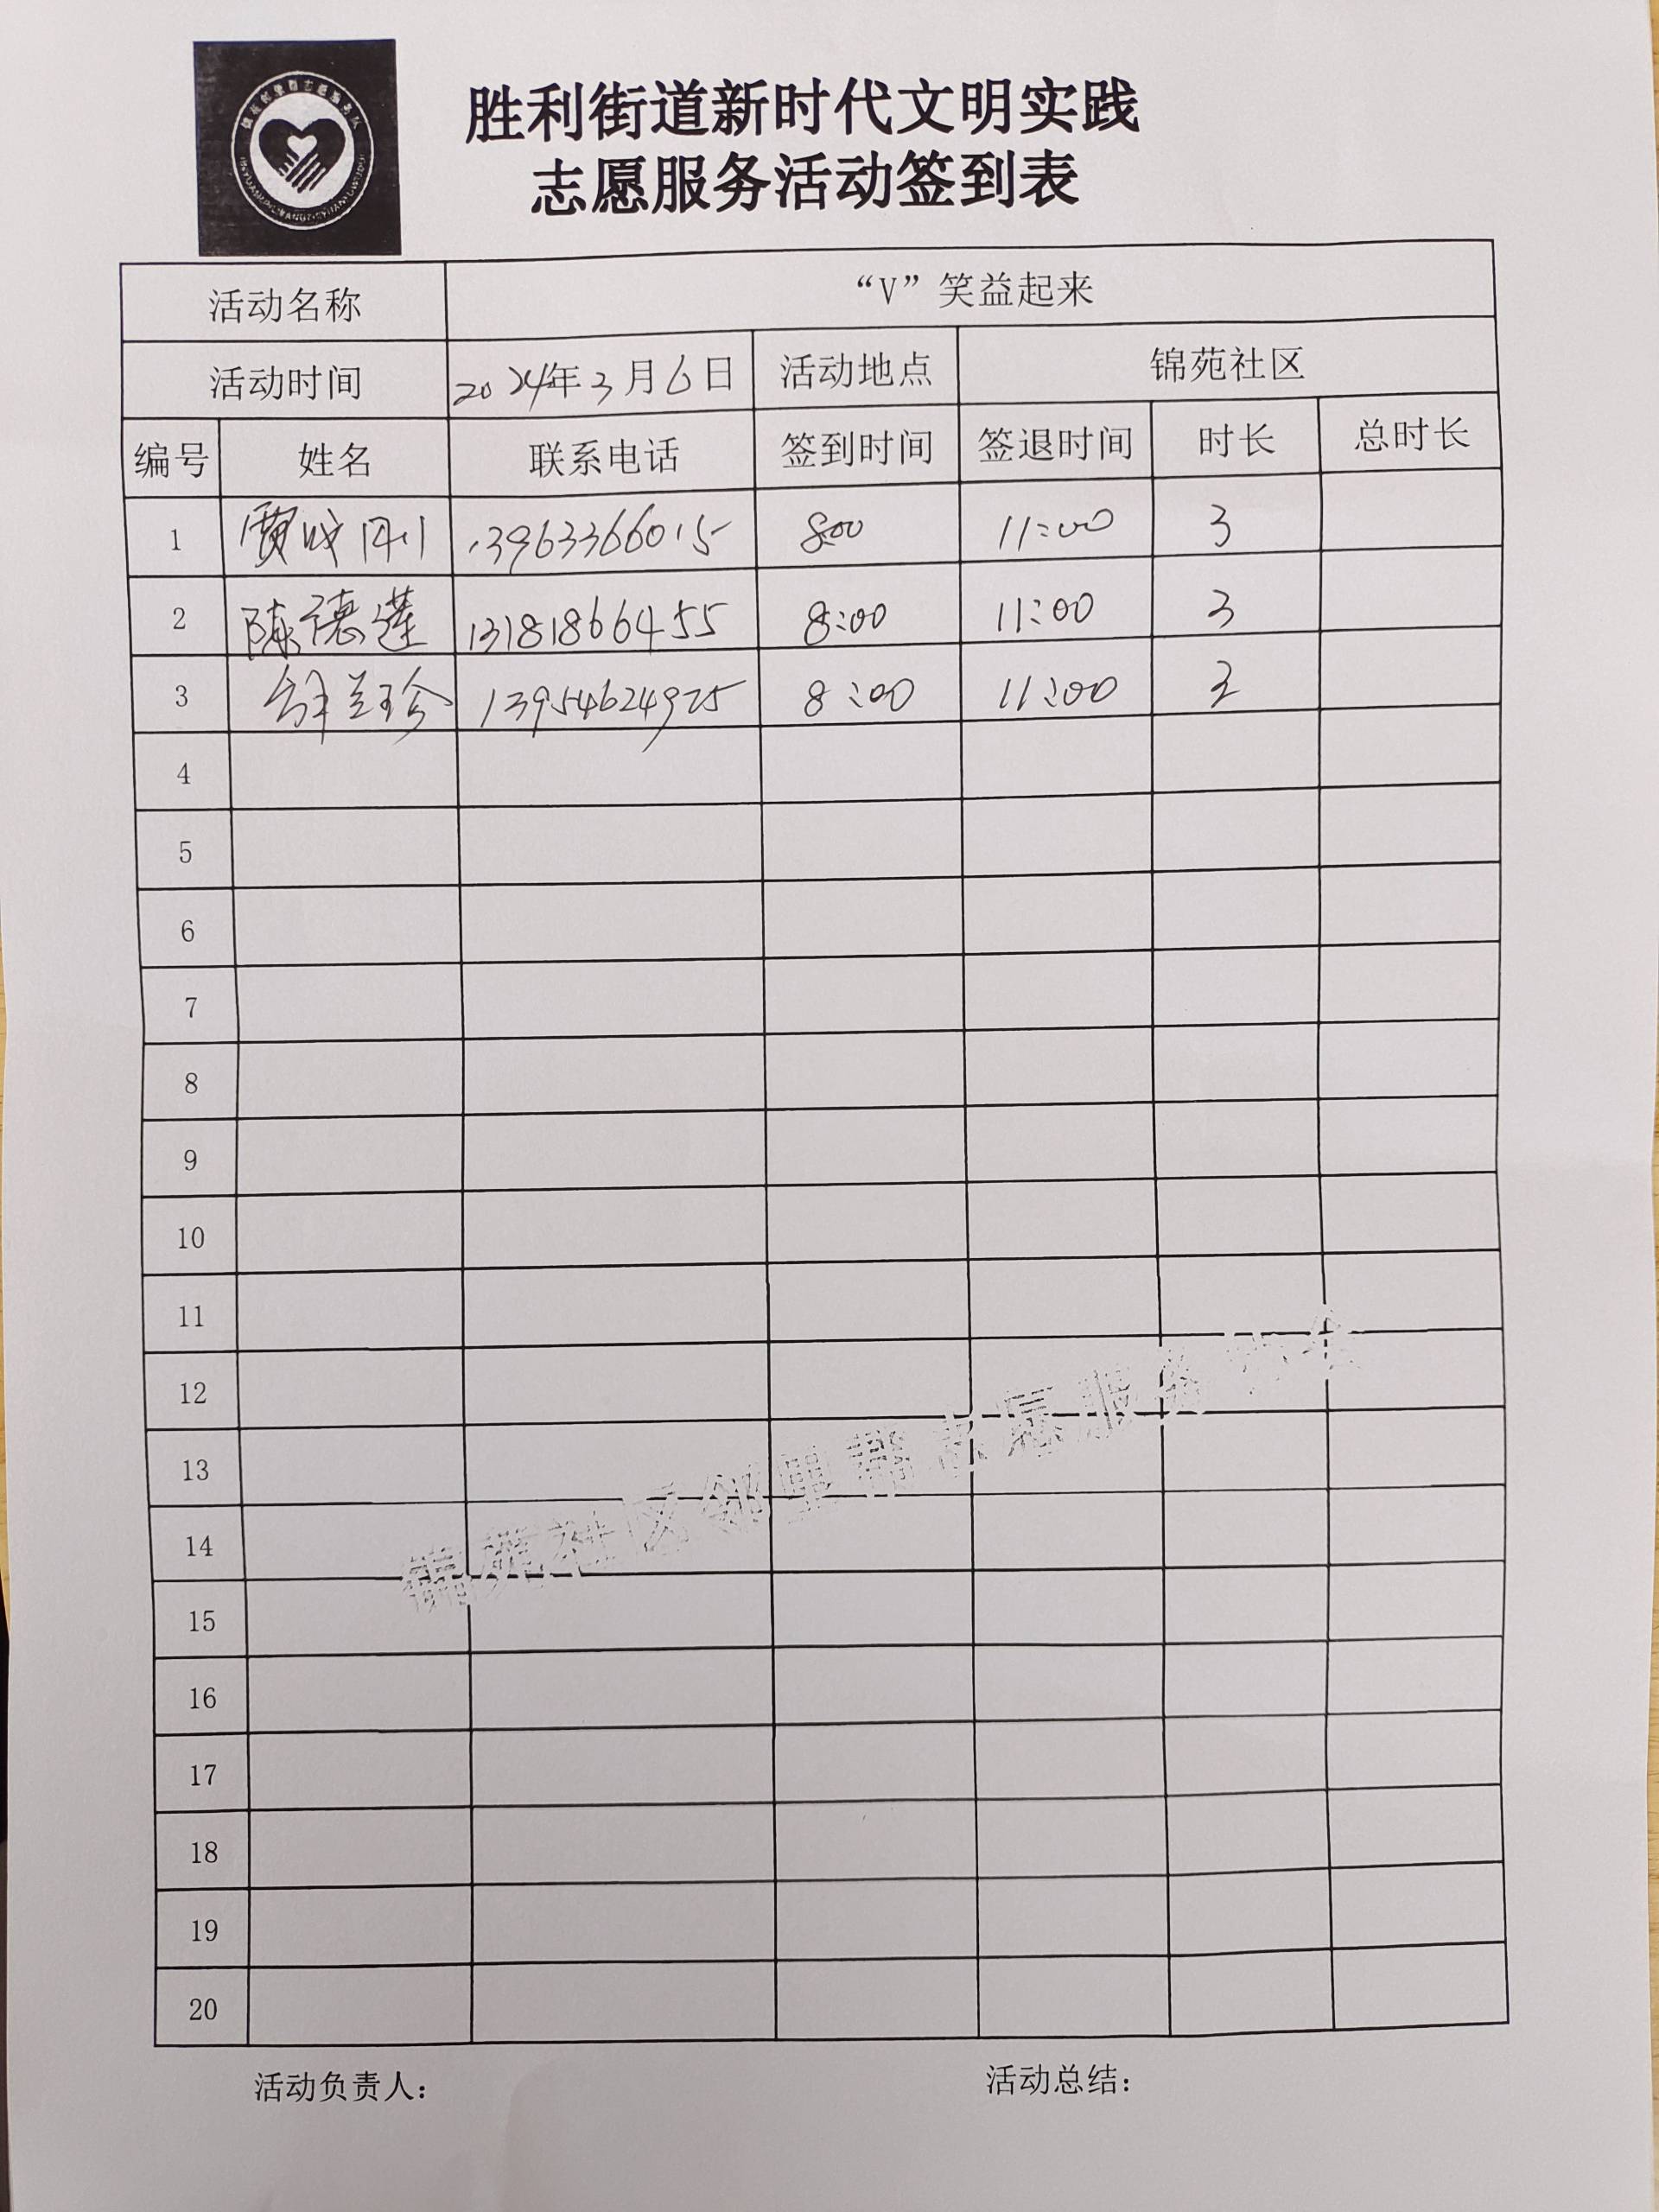 胜利街道新时代文明实践
志愿服务活动签到表
活动名称 “V”笑益起来
活动时间 2024年3月6日 活动地点 锦苑社区
编号 姓名 联系电话 签到时间 签退时间 时长 总时长
1 贾 刚 13963366015 8:00 11:00 3
2 陈德莲 13181866455 8:00 11:00 3
3 兰珍 13954624975 8:00 11:00 3
4
5
6
7
8
9
10
11
12
13
14
15
16
17
18
19
20
锦苑社区邻里帮志愿服务协会
活动负责人： 活动总结：